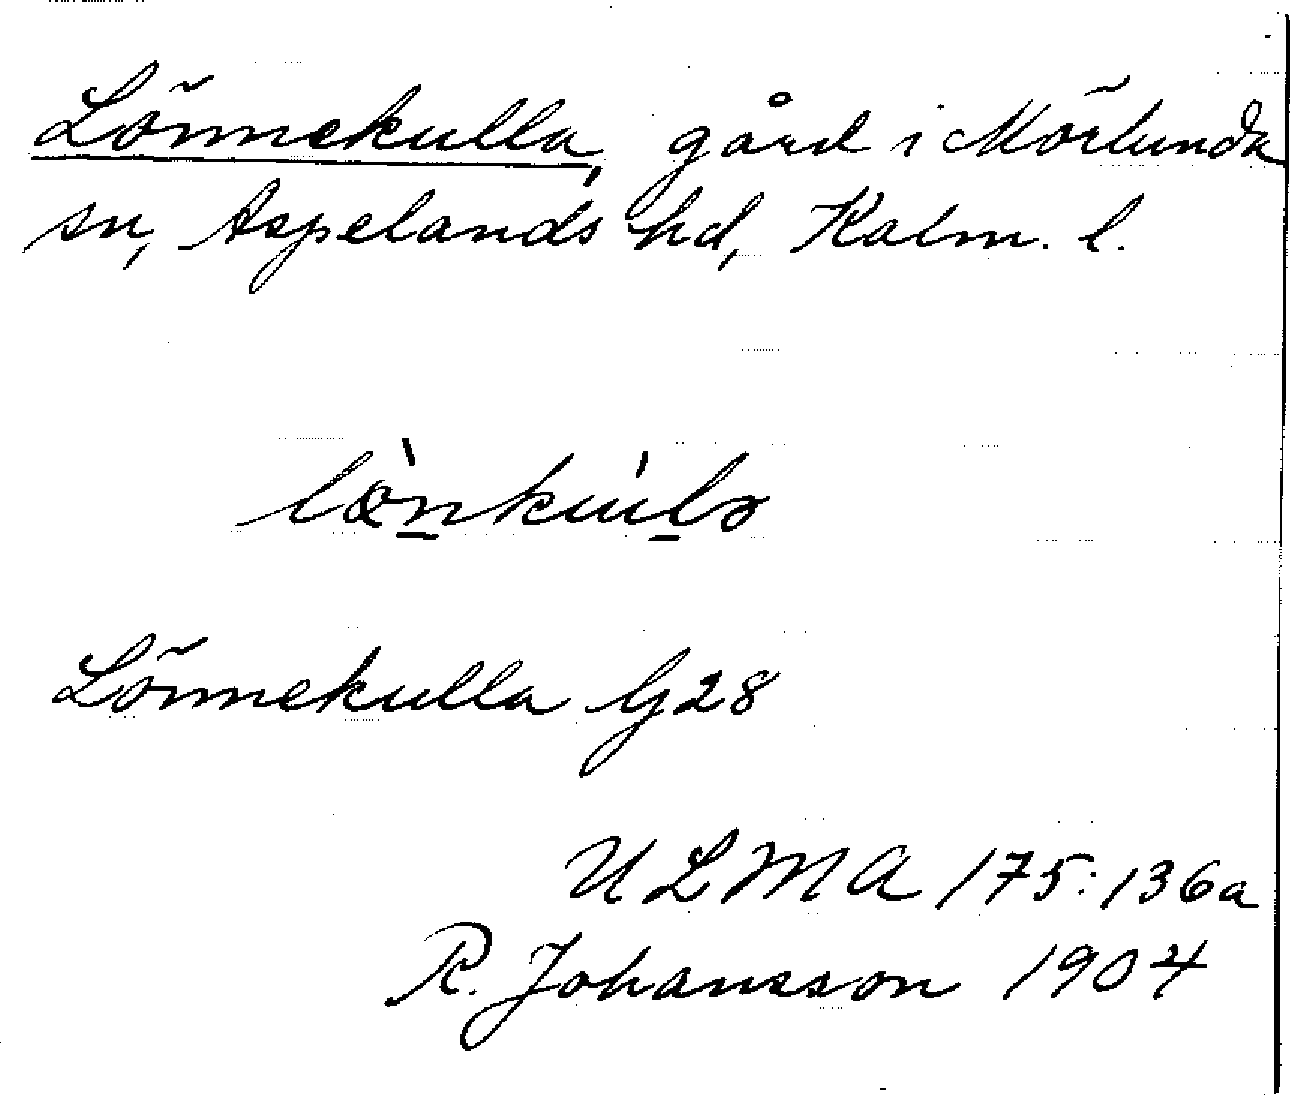 Lönnekulla, gård i Mörlunda
sn, Aspelands hd, Kalm. l.
Lönnekulla Gj28
ULMA 175:136a
R. Johansson 1904